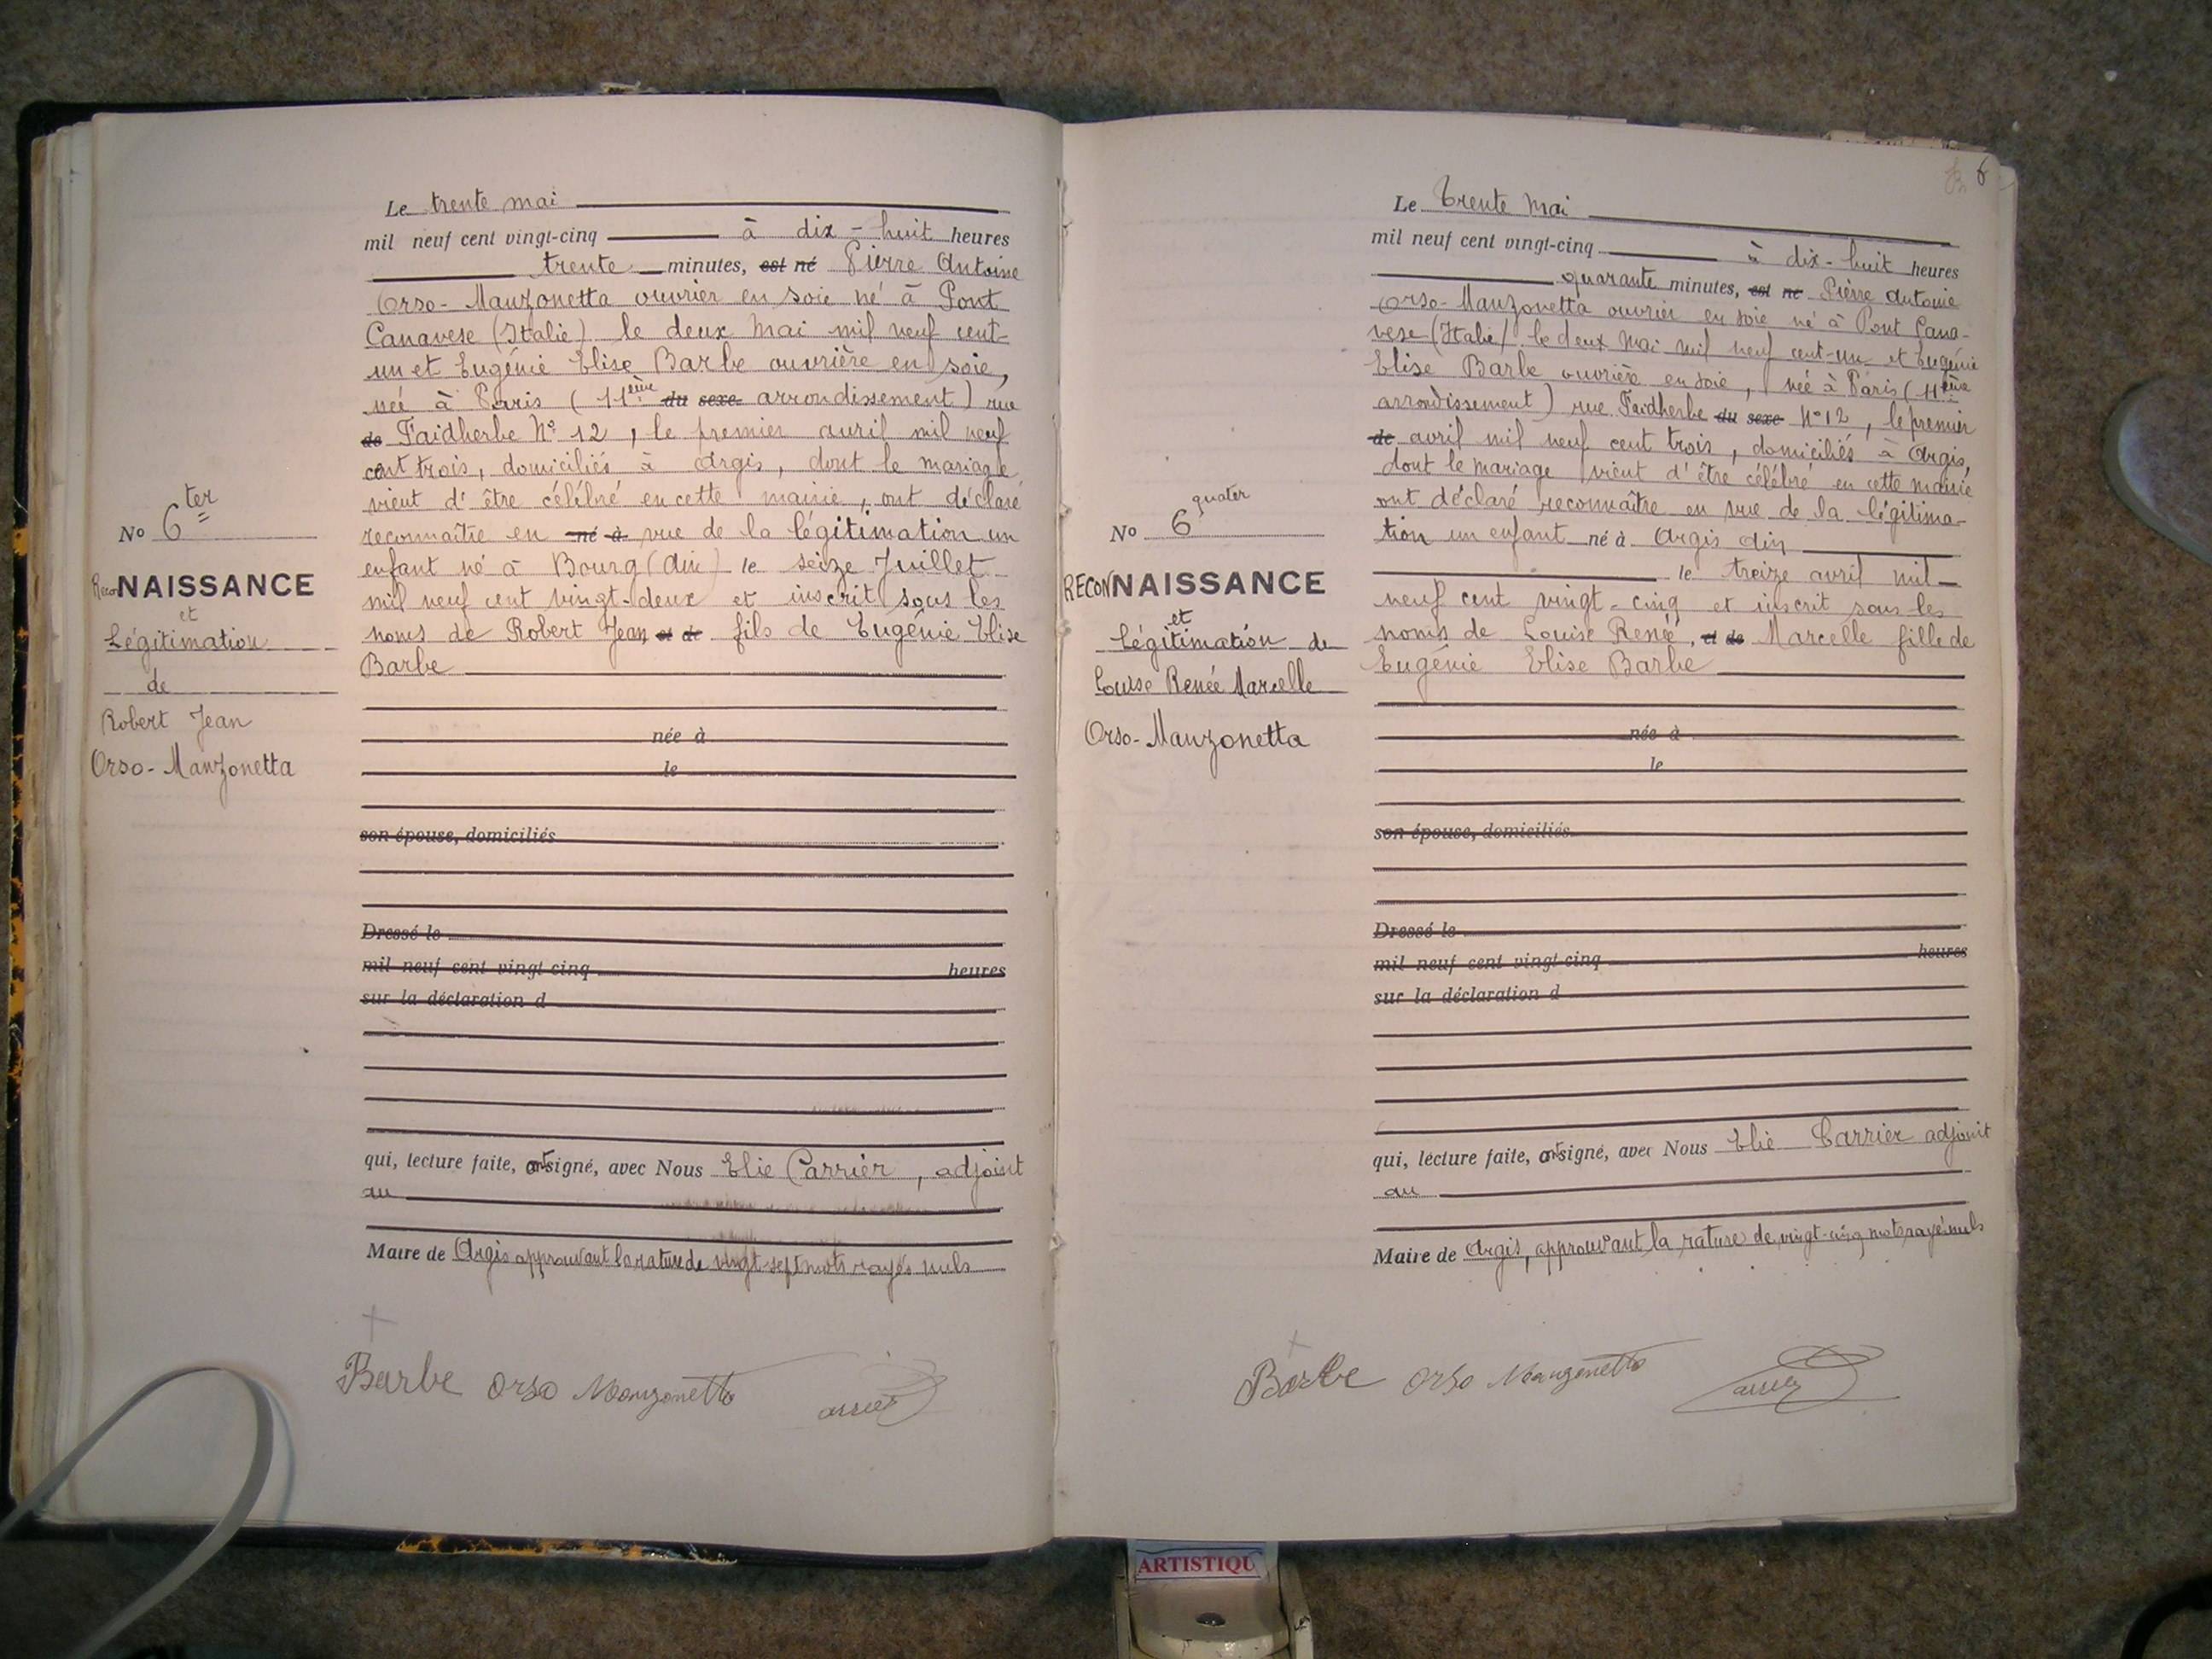 Le trente mai
mil neuf cent vingt-cinq à dix-huit heures
trente minutes, est né Pierre Antoine
Orso-Manzonetta ouvrier en soie né à Pont
Canavese (Italie) le deux Mai mil neuf cent-
un et Eugénie Elise Barbe ouvrière en soie,
née à Paris (11ème du sexe arrondissement) rue
de Faidherbe N° 12, le premier avril mil neuf
cent trois, domiciliés à Argis, dont le mariage
vient d'être célébré en cette mairie, ont déclaré
reconnaître en né à vue de la légitimation un
enfant né à Bourg (Ain) le seize Juillet
mil neuf cent vingt-deux et inscrit sous les
noms de Robert Jean et de fils de Eugénie Elise
Barbe
No 6 ter
RecoNAISSANCE
et
Légitimation
de
Robert Jean
Orso-Manzonetta
née à
le
son épouse, domiciliés
Dressé le
mil neuf cent vingt-cinq heures
sur la déclaration d
qui, lecture faite, ont signé, avec Nous Elie Carrier, adjoint
au
Maire de Argis approuvant la rature de vingt-sept mots rayés nuls
Barbe Orso Manzonetto
6
Le trente mai
mil neuf cent vingt-cinq à dix-huit heures
quarante minutes, est né Pierre Antoine
Orso-Manzonetta ouvrier en soie né à Pont Cana-
vese (Italie) le deux Mai mil neuf cent-un et Eugénie
Elise Barbe ouvrière en soie, née à Paris (11ème
arrondissement) rue Faidherbe du sexe N°12, le premier
de avril mil neuf cent trois, domiciliés à Argis,
dont le mariage vient d'être célébré en cette mairie
ont déclaré reconnaître en vue de la légitima-
tion un enfant né à Argis Ain
le treize avril mil
neuf cent vingt-cinq et inscrit sous les
noms de Louise Renée, et de Marcelle fille de
Eugénie Elise Barbe
No 6 quater
RECONNAISSANCE
et
Légitimation de
Louise Renée Marcelle
Orso-Manzonetta
née à
le
son épouse, domiciliés
Dressé le
mil neuf cent vingt-cinq heures
sur la déclaration d
qui, lecture faite, ont signé, avec Nous Elie Carrier adjoint
au
Maire de Argis, approuvant la rature de vingt-cinq mots rayés nuls
Barbe Orso Manzonetto
ARTISTIQU